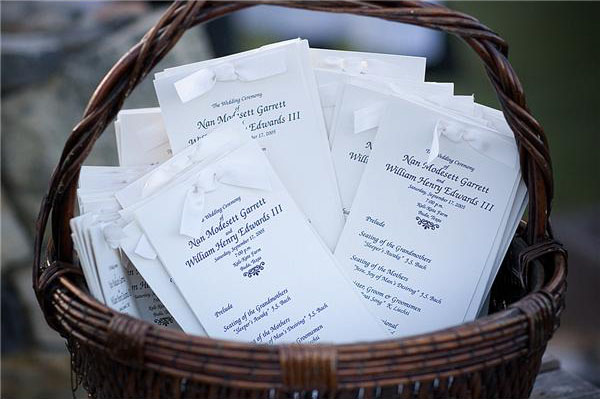 The Wedding Ceremony
Nan Modesett Garrett
William Henry Edwards III
12, 2005
The Wedding Ceremony
Nan Modesett Garrett
William Henry Edwards III
Saturday, September 17, 2005
7:00 p.m.
Kali-Kate Farm
Buda, Texas
Prelude
Seating of the Grandmothers
"Sleeper's Awake" J.S. Bach
Seating of the Mothers
Joy of Man's Desiring" J.S. Bach
Groom & Groomsmen
Song" K. Luschi
Nan Modesett Garrett
William Henry Edwards III
Saturday, September 17, 2005
7:00 p.m.
Kali-Kate Farm
Buda, Texas
Prelude
Seating of the Grandmothers
"Sleeper's Awake" J.S. Bach
Seating of the Mothers
Joy of Man's Desiring" J.S. Bach
Groomsmen